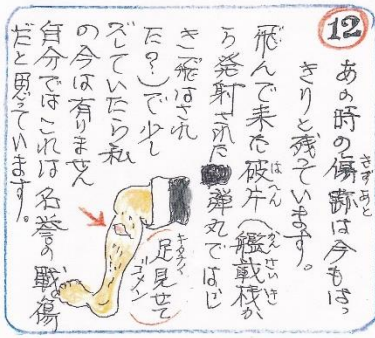 12
あの時の傷跡は今もはっ
きずあと
きりと残っています。
飛んで来た破片(艦戦機か
と はへん かんせいき
ら発射された弾丸ではじ
き飛ばされ
た?)で少し
ズレていたら私
の今は有りません
自分ではこれは名誉の戦傷
だと思っています。
キタナイ
足見せて
ゴメン